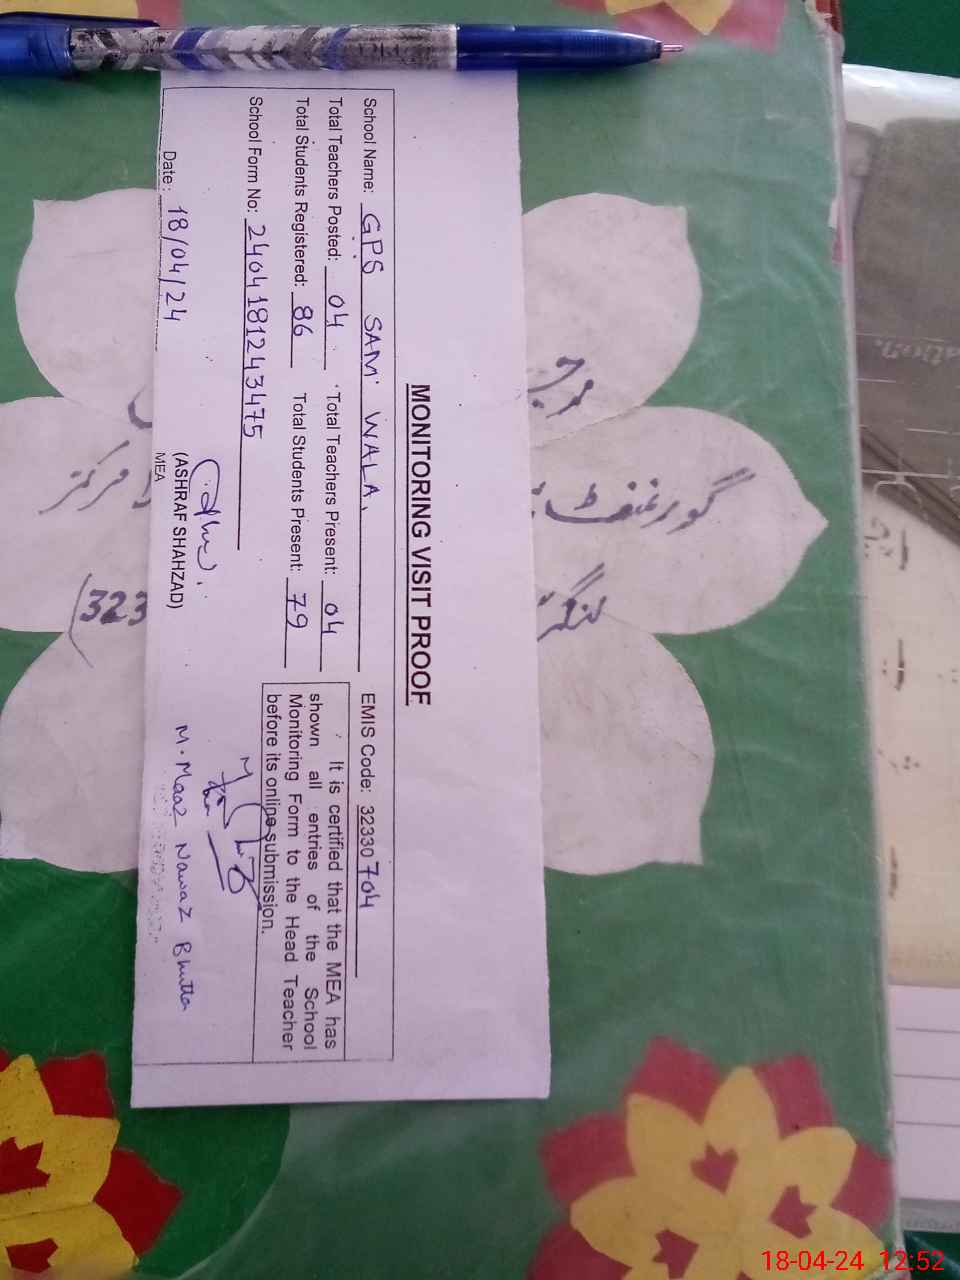 MONITORING VISIT PROOF
School Name: GPS SAM WALA. EMIS Code: 32330704
Total Teachers Posted: 04 Total Teachers Present: 04
Total Students Registered: 86 Total Students Present: 79
School Form No: 2404181243475
It is certified that the MEA has
shown all entries of the School
Monitoring Form to the Head Teacher
before its online submission.
Date: 18/04/24
(ASHRAF SHAHZAD)
MEA
M. Maaz Nawaz Bhutta
گورنمنٹ
مرکز
(323
18-04-24 12:52